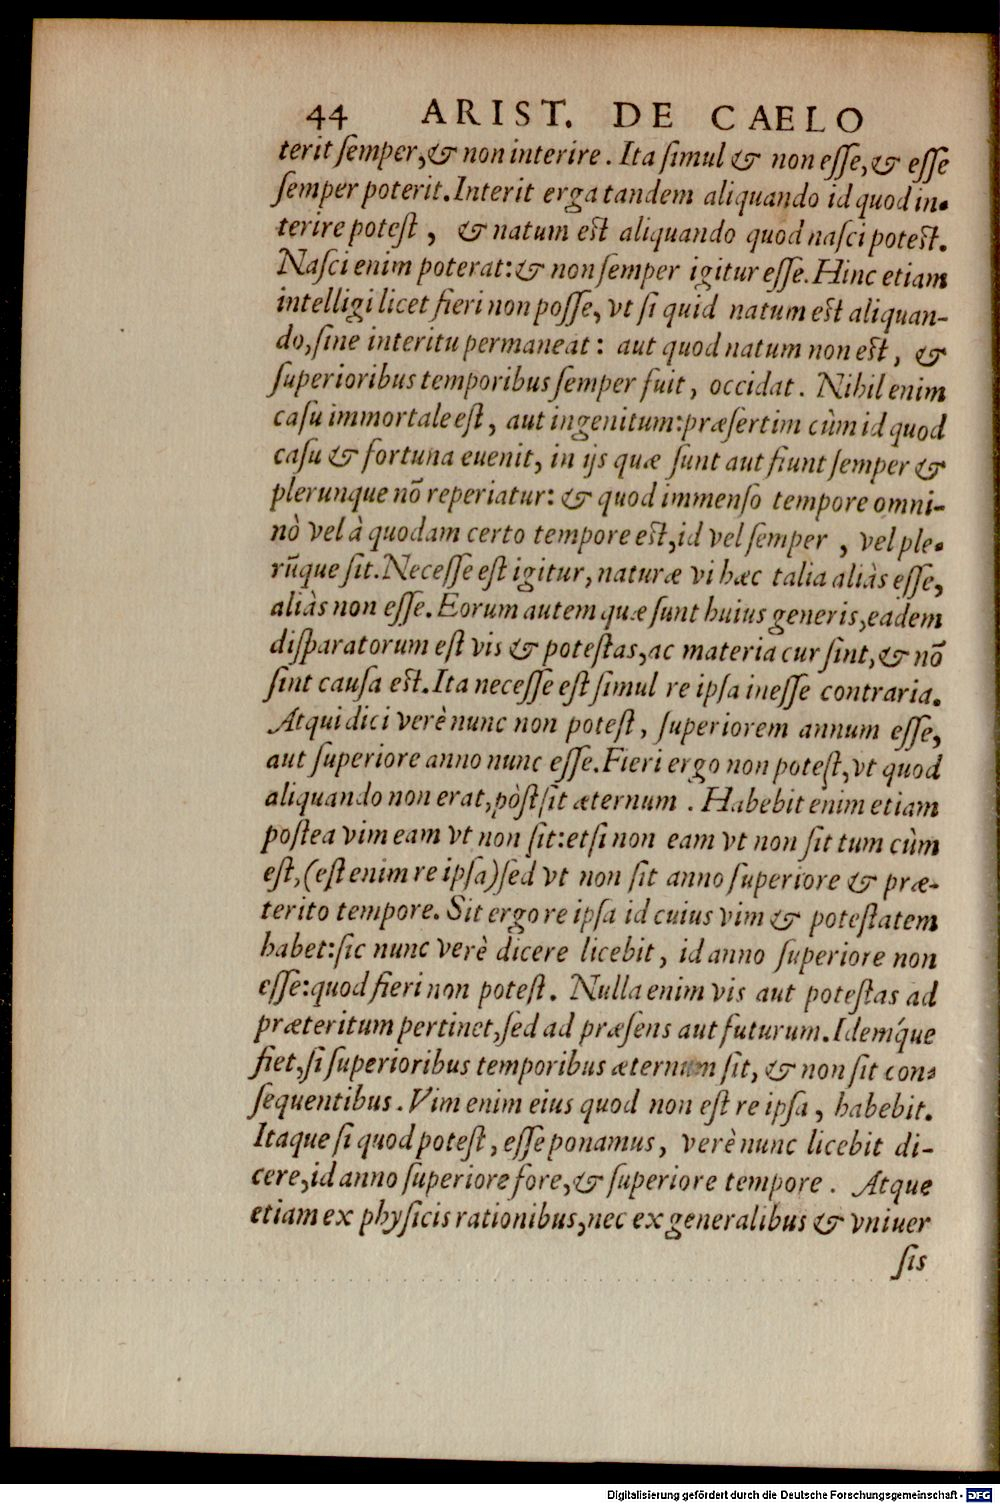 44 ARIST. DE CAELO
terit semper, & non interire. Ita simul & non esse, & esse
semper poterit. Interit erga tandem aliquando id quod in-
terire potest, & natum est aliquando quod nasci potest.
Nasci enim poterat: & non semper igitur esse. Hinc etiam
intelligi licet fieri non posse, vt si quid natum est aliquan-
do, sine interitu permaneat: aut quod natum non est, &
superioribus temporibus semper fuit, occidat. Nihil enim
casu immortale est, aut ingenitum: præsertim cùm id quod
casu & fortuna euenit, in ijs quæ sunt aut fiunt semper &
plerunque nō reperiatur: & quod immenso tempore omni-
nò vel à quodam certo tempore est, id vel semper, vel ple-
rūque sit. Necesse est igitur, naturæ vi hæc talia aliàs esse,
aliàs non esse. Eorum autem quæ sunt huius generis, eadem
disparatorum est vis & potestas, ac materia cur sint, & nō
sint causa est. Ita necesse est simul re ipsa inesse contraria.
Atqui dici verè nunc non potest, superiorem annum esse,
aut superiore anno nunc esse. Fieri ergo non potest, vt quod
aliquando non erat, pòst sit æternum. Habebit enim etiam
postea vim eam vt non sit: etsi non eam vt non sit tum cùm
est, (est enim re ipsa) sed vt non sit anno superiore & præ-
terito tempore. Sit ergo re ipsa id cuius vim & potestatem
habet: sic nunc verè dicere licebit, id anno superiore non
esse: quod fieri non potest. Nulla enim vis aut potestas ad
præteritum pertinet, sed ad præsens aut futurum. Idemq́ue
fiet, si superioribus temporibus æternum sit, & non sit con-
sequentibus. Vim enim eius quod non est re ipsa, habebit.
Itaque si quod potest, esse ponamus, verè nunc licebit di-
cere, id anno superiore fore, & superiore tempore. Atque
etiam ex physicis rationibus, nec ex generalibus & vniuer
sis
Digitalisierung gefördert durch die Deutsche Forschungsgemeinschaft - DFG